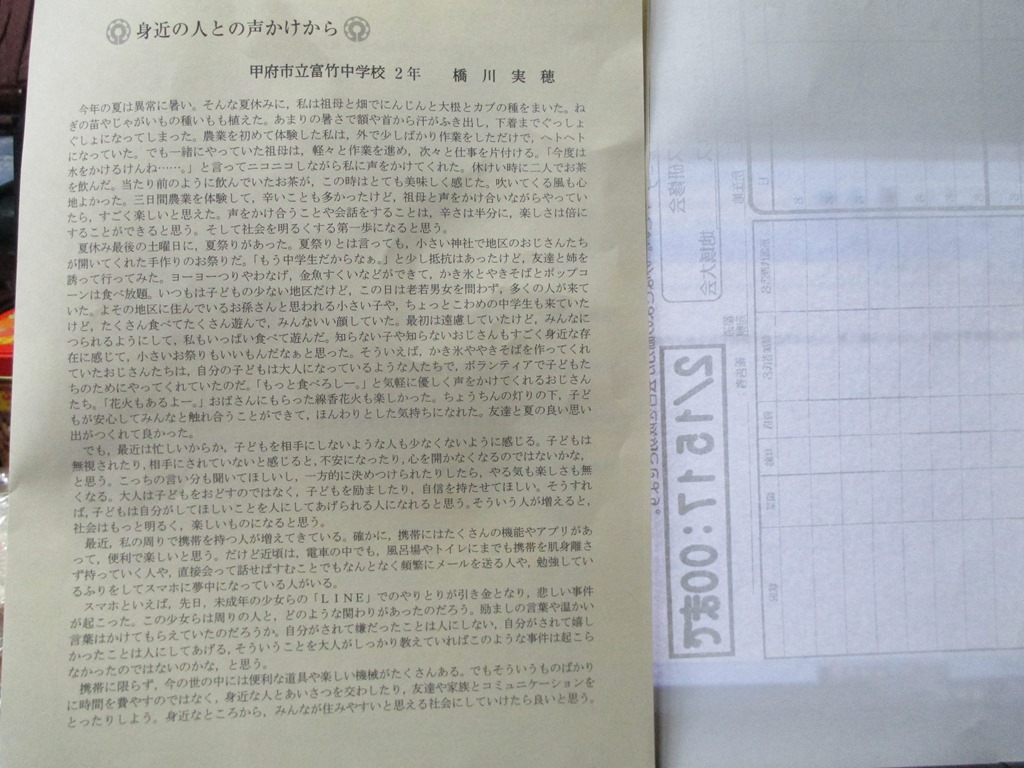 身近の人との声かけから
甲府市立富竹中学校 2年 橋川実穂
今年の夏は異常に暑い。そんな夏休みに，私は祖母と畑でにんじんと大根とカブの種をまいた。ね
ぎの苗やじゃがいもの種いもも植えた。あまりの暑さで額や首から汗がふき出し，下着までぐっしょ
ぐしょになってしまった。農業を初めて体験した私は，外で少しばかり作業をしただけで，ヘトヘト
になっていた。でも一緒にやっていた祖母は，軽々と作業を進め，次々と仕事を片付ける。「今度は
水をかけるけんね……。」と言ってニコニコしながら私に声をかけてくれた。休けい時に二人でお茶
を飲んだ。当たり前のように飲んでいたお茶が，この時はとても美味しく感じた。吹いてくる風も心
地よかった。三日間農業を体験して，辛いことも多かったけど，祖母と声をかけ合いながらやってい
たら，すごく楽しいと思えた。声をかけ合うことや会話をすることは，辛さは半分に，楽しさは倍に
することができると思う。そして社会を明るくする第一歩になると思う。
夏休み最後の土曜日に，夏祭りがあった。夏祭りとは言っても，小さい神社で地区のおじさんたち
が開いてくれた手作りのお祭りだ。「もう中学生だからなぁ。」と少し抵抗はあったけど，友達と姉を
誘って行ってみた。ヨーヨーつりやわなげ，金魚すくいなどができて，かき氷とやきそばとポップコ
ーンは食べ放題。いつもは子どもの少ない地区だけど，この日は老若男女を問わず，多くの人が来て
いた。よその地区に住んでいるお孫さんと思われる小さい子や，ちょっとこわめの中学生も来ていた
けど，たくさん食べてたくさん遊んで，みんないい顔していた。最初は遠慮していたけど，みんなに
つられるようにして，私もいっぱい食べて遊んだ。知らない子や知らないおじさんもすごく身近な存
在に感じて，小さいお祭りもいいもんだなぁと思った。そういえば，かき氷ややきそばを作ってくれ
ていたおじさんたちは，自分の子どもは大人になっているような人たちで，ボランティアで子どもた
ちのためにやってくれていたのだ。「もっと食べろしー。」と気軽に優しく声をかけてくれるおじさん
たち。「花火もあるよー。」おばさんにもらった線香花火も楽しかった。ちょうちんの灯りの下，子ど
もが安心してみんなと触れ合うことができて，ほんわりとした気持ちになれた。友達と夏の良い思い
出がつくれて良かった。
でも，最近は忙しいからか，子どもを相手にしないような人も少なくないように感じる。子どもは
無視されたり，相手にされていないと感じると，不安になったり，心を開かなくなるのではないかな，
と思う。こっちの言い分も聞いてほしいし，一方的に決めつけられたりしたら，やる気も楽しさも無
くなる。大人は子どもをおどすのではなく，子どもを励ましたり，自信を持たせてほしい。そうすれ
ば，子どもは自分がしてほしいことを人にしてあげられる人になれると思う。そういう人が増えると，
社会はもっと明るく，楽しいものになると思う。
最近，私の周りで携帯を持つ人が増えてきている。確かに，携帯にはたくさんの機能やアプリがあ
って，便利で楽しいと思う。だけど近頃は，電車の中でも，風呂場やトイレにまでも携帯を肌身離さ
ず持っていく人や，直接会って話せばすむことでもなんとなく頻繁にメールを送る人や，勉強してい
るふりをしてスマホに夢中になっている人がいる。
スマホといえば，先日，未成年の少女らの「LINE」でのやりとりが引き金となり，悲しい事件
が起こった。この少女らは周りの人と，どのような関わりがあったのだろう。励ましの言葉や温かい
言葉はかけてもらえていたのだろうか。自分がされて嫌だったことは人にしない，自分がされて嬉し
かったことは人にしてあげる，そういうことを大人がしっかり教えていればこのような事件は起こら
なかったのではないのかな，と思う。
携帯に限らず，今の世の中には便利な道具や楽しい機械がたくさんある。でもそういうものばかり
に時間を費やすのではなく，身近な人とあいさつを交わしたり，友達や家族とコミュニケーションを
とったりしよう。身近なところから，みんなが住みやすいと思える社会にしていけたら良いと思う。
2/15 17:00まで